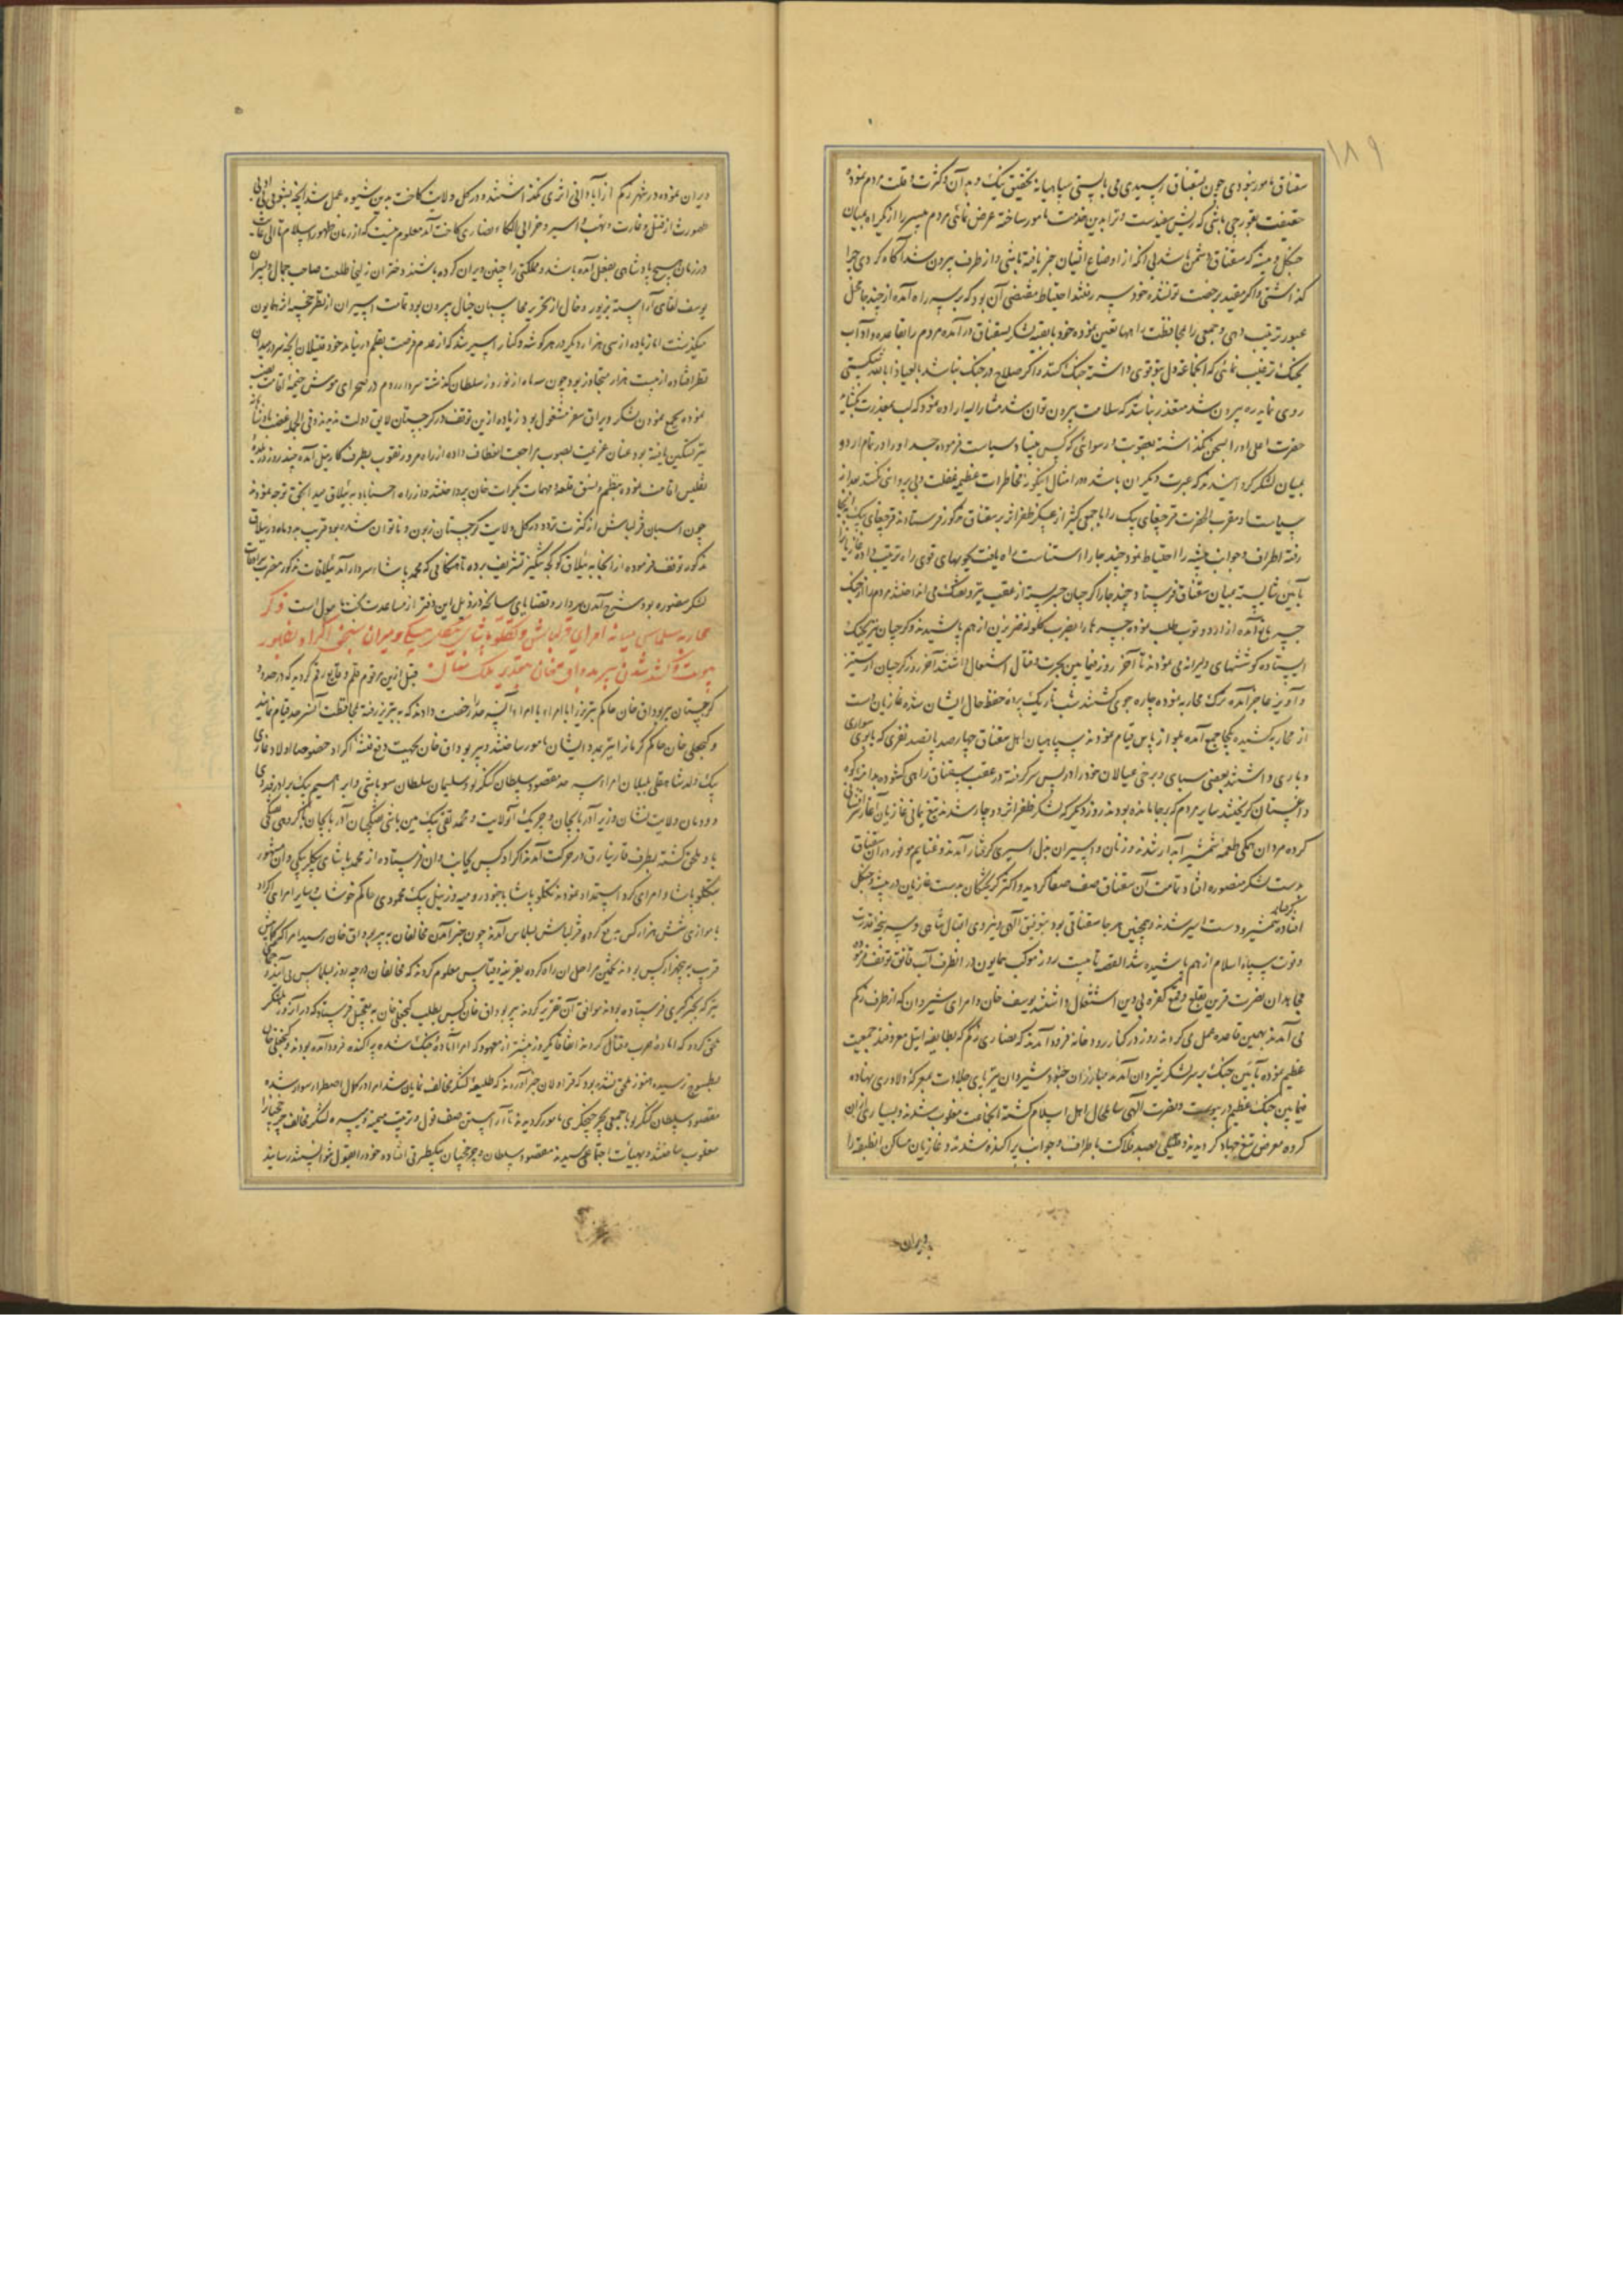 ۱۸۹
سقناق مامور نمودی چون بسقناق رسیدی می بایستی سپاهیانه تحقیق نیک و بد آن و کثرت و قلت مردم نموده
حقیقت بقورچی باشی که ریش سفید ست و ترا بدین خدمت مامور ساخته عرض نمائی مردم میسر را از یکراه بمیان
جنگل و بیشه که سقناق دشمن باشد بی آنکه از اوضاع ایشان خبر یافته باشی و از طرف بیرون شد آگاه گردی چرا
گذاشتی و اگر مقید برخصت تو نشده خود سر رفتند احتیاط مقتضی آن بود که بر سر راه آمده از چند جا محل
عبور ترتیب دهی و جمعی را بمحافظت راهها تعیین نموده خود با بقیه لشکر بسقناق در آمده مردم را بقاعده و آداب
جنگ ترغیب نمائی که آنجماعه دل بتو قوی داشته جنگ کنند و اگر صلاح در جنگ نباشد یا العیاذ بالله شکستی
روی نماید ره بیرون شد متعذر نباشد که سلامت بیرون توان شد مشار الیه اراده نمود که لب بمعذرت بگشاید
حضرت اعلی او را سخن نگذاشته بعقوبت و رسوائی که کس مبیناد سیاست فرموده جسد او را در تمام اردو
بمیان لشکر گردانیدند که عبرت دیگران باشد و در امثال اینگونه مخاطرات عظیمه غفلت و بی پروائی نکنند بعد از
سیاست او مقرب الحضرت قرچغای بیک را با جمعی کثیر از عساکر ظفر اثر بر سقناق مذکور فرستادند قرچغای بیک بآنجا
رفته اطراف و جوانب بیشه را احتیاط نمود چند جا را
بآئین شایسته بمیان سقناق فرستاد چند جا را گرجیان چپر بسته از عقب تیر و تفنگ می انداختند مردم را از جنگ
ایستاده کوششهای دلیرانه می نمودند تا آخر روز فیما بین بحرب و قتال اشتعال داشتند آخر روز گرجیان از ستیز
و آویز عاجز آمده ترک محاربه نموده چاره جوی گشتند شب تاریک پرده حفظ حال ایشان شده غازیان دست
از محاربه کشیده یکجا جمع آمده بلوازم پاس قیام نمودند سپاهیان اهل سقناق چهار صد پانصد نفری که یابوی سواری
و باری داشتند بعضی سبای و برخی عیالان خود را در پس سر گرفته در عقب سقناق راهی گشوده بدامنه کوه
داغستان گریختند سایر مردم که بر جا مانده بودند روز دیگر که لشکر ظفر اثر دو چار شدند تیغ یمانی غازیان آغاز سرافشانی
کرده مردان همگی طعمه شمشیر آبدار شدند و زنان و اسیران بذل اسیری گرفتار آمدند و غنایم موفور در آن سقناق
بدست لشکر منصوره افتاد تمامت آن سقناق صف صفا گردید و اکثر گریختگان بدست غازیان در بیشه و جنگل
افتاده بشمشیر و دست اسیر شدند و همچنین هر جا سقناقی بود بتوفیق الهی و نیروی اقبال شاهی و سر پنجه قدرت
و قوت سپاه اسلام از هم پاشیده شد القصه تا بیست روز موکب همایون در آنطرف آب قانق توقف فرموده
مجاهدان نصرت قرین بقلع و قمع کفره بی دین اشتغال داشتند یوسف خان و امرای شیروان که از طرف زکم
می آمدند بهمین قاعده عمل می کردند روزی در کنار رودخانه فرود آمدند که نصاری زکم که بطایفه ایتل معروفند جمعیت
عظیم نموده بآئین جنگ بر سر لشکر شیروان آمدند مبارزان جنود شیروان نیز پای جلادت بمعرکه دلاوری نهاده
فیما بین جنگ عظیم در پیوست و نصرت الهی شامل حال اهل اسلام گشته آنجماعت مغلوب شدند و بسیاری از آن
کرده معرض تیغ جهاد گردیدند و بقیه بصد فلاکت باطراف و جوانب پراکنده شدند و غازیان مساکن آنطبقه را
ویران
ویران نموده در شهر زکم از آبادانی اثری نگذاشتند و در کل ولایت کاخت بدین شیوه عمل شد
صورت از قتل و غارت و نهب و اسیر و خرابی الکاء نصاری کاخت آمد معلوم نیست که از زمان ظهور اسلام تا الی غایت
در زمان هیچ پادشاهی بفعل آمده باشد و مملکتی را چنین ویران کرده باشند دختران زلیخا طلعت صاحب جمال و پسران
یوسف لقای آراسته بزیور و خال از تحریر محاسبان خیال بیرون بود تمامت اسیران از نظر خجسته اثر همایون
میگذشت اما زیاده از سی هزار دیگر در هر گوشه و کنار اسیر شد که از عدم فرصت بقلم در نیامد
بنظر افتاده از بیست هزار متجاوز بود چون سه ماه از نوروز سلطان گذشته سردار روم در صحرای موش خیمه اقامت نصب
نموده بجمع نمودن لشکر و یراق سفر مشغول بود زیاده ازین توقف در گرجستان لایق دولت ندیدند
نیز تسکین یافته بود عنان عزیمت بصوب مراجعت انعطاف داده از راه مرور بطرف کارتیل آمده چند روز در بلده
تفلیس اقامت نموده بنظم و نسق قلعه و مهمات بکرات خان پرداختند و از راه حسناباد به ییلاق میدانجق توجه نمودند
چون اسبان قزلباش از کثرت تردد در کل ولایت گرجستان زبون و ناتوان شده بود قریب به دو ماه در ییلاق
مذکور توقف فرموده از آنجا به ییلاق کوگچه تنگیز تشریف برده تا هنگامی که محمد پاشاء سردار آمد ییلاقات مذکور مضرب خیام
لشکر منصوره بود شرح آمدن سردار و قضایای سانحه در ذیل این دفتر از مساعدت بخت مامول است ذکر
محاربه سلماس میانه امرای قزلباش و تکلو پاشا
پیوست و کشته شدن پیر بوداق خان بتقدیر ملک منان قبل ازین مرقوم قلم وقایع رقم گردید که در حدود
گرجستان پیر بوداق خان حاکم تبریز را با امراء آن سرحد رخصت دادند که به تبریز رفته بمحافظت آن سرحد قیام نمایند
و گنجعلی خان حاکم کرمان را نیز بمدد ایشان مامور ساختند و پیر بوداق خان بجهت دفع فتنه اکراد خصوصا اولاد غازی
بیک ولد شاهقلی بلیلان امراء سرحد مقصود سلطان کنگرلو و سلیمان سلطان سوباشی و ابراهیم بیک برادر
و دودمان ولایت نشان وزیر آذربایجان و چریک آن ولایت و محمد تقی بیک مین باشی تفنگچیان آذربایجان با گروهی همگی
باو ملحق گشته بطرف قارنیارق در حرکت آمدند اکراد کس بجانب وان فرستاده از محمد پاشای بیگلربیگی وان مشهور
بتکلو پاشا و امرای کرد استمداد نمودند تکلو پاشا با جنود رومیه و زینل بیک محمودی حاکم خوشاب و سایر امرای اکراد
با موازی شش هزار کس بدفع گروه قزلباش سلماس آمدند چون خبر آمدن مخالفان به پیر بوداق خان رسید
قرب به پنجهزار کس بودند بتخمین مراحل آن راه کرده بقرینه و قیاس معلوم کردند که مخالفان در چه روز بسلماس می آیند
پیر بوداق خان کس بطلب گنجعلی خان به تعجیل فرستاد که در آن روز بلشکر
ملحق گردد که آماده حرب و قتال گردند اتفاقا یکروز پیشتر از معهود که امرا آماده جنگ شده پراکنده فرود آمده بودند و گنجعلی خان
بطسوج رسیده هنوز ملحق نشده بود که قراولان خبر آوردند که طلیعه لشکر مخالف نمایان شد امرا در کمال اضطرار سوار شده
مقصود سلطان کنگرلو با جمعی بچرخچیگری مامور گردیدند تا آراستن صف قول و ترتیب میمنه و میسره لشکر مخالف چرخچیانرا
مغلوب ساختند و بهیات اجتماعی رسیدند مقصود سلطان و چرخچیان بیکطرف افتاده خود را بقول نتوانستند رسانید